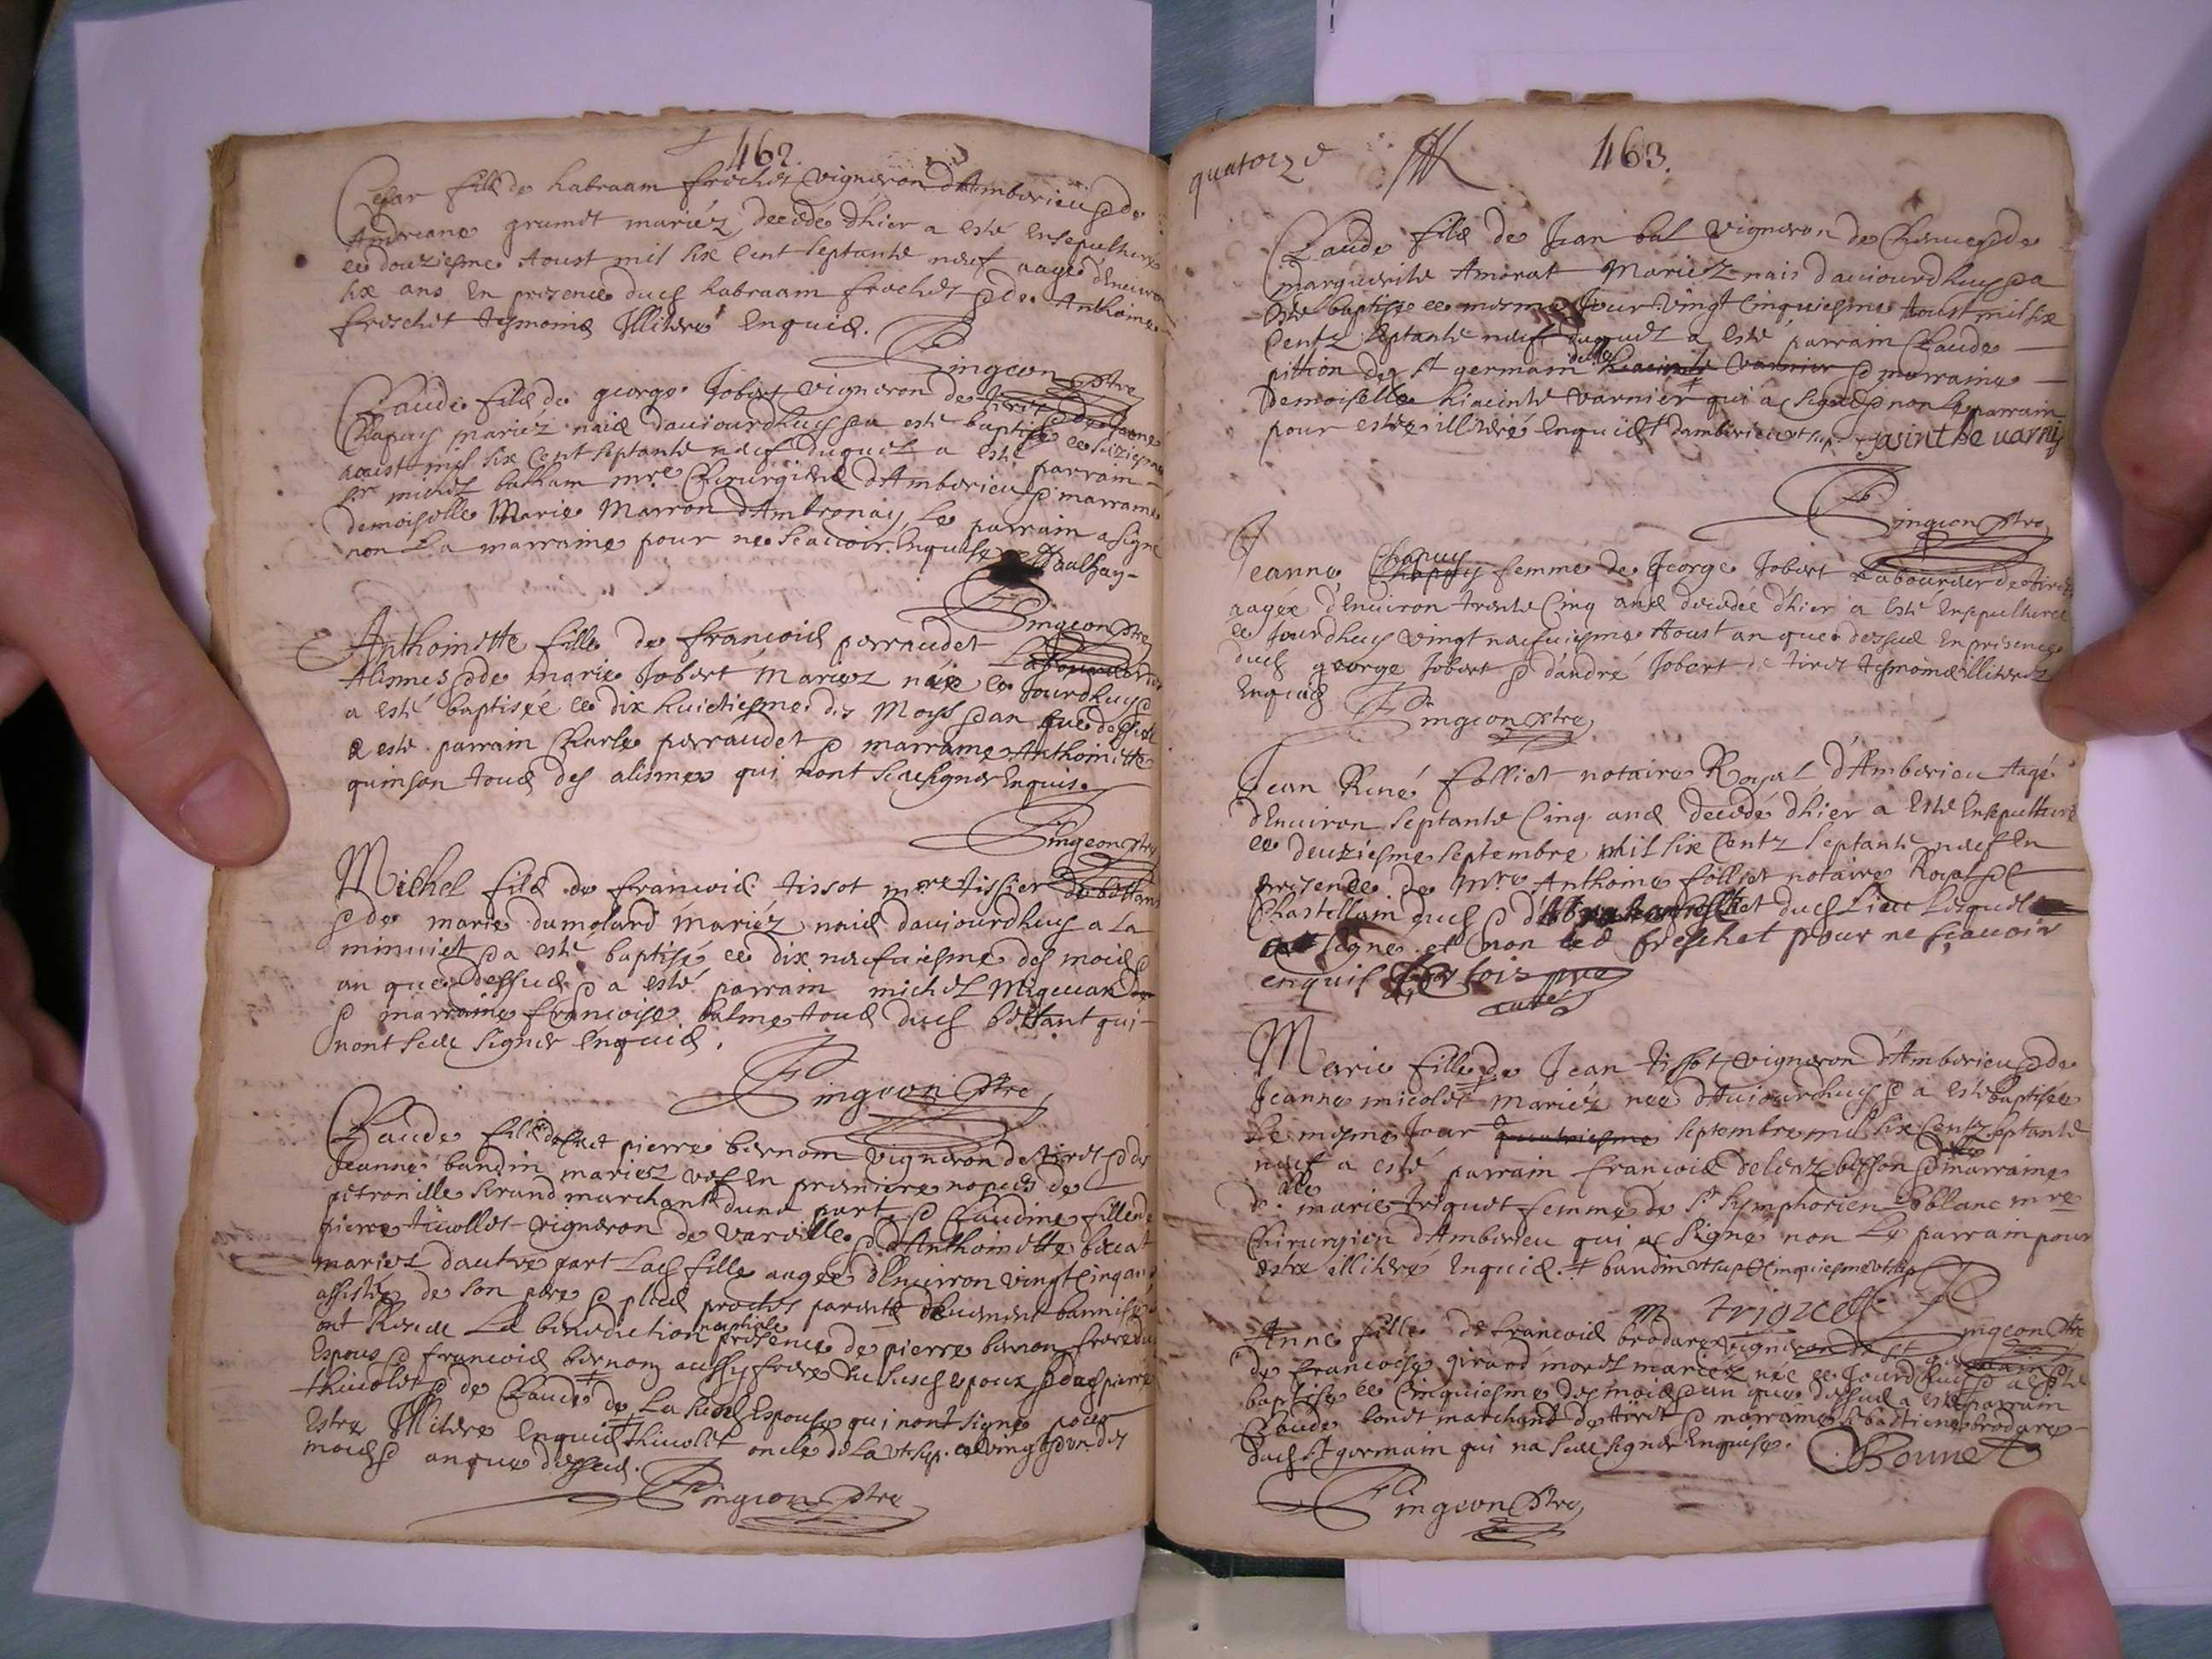 462.
Cesar fils de habraam frechet vigneron d'Amberieu & de
Andreane grumet mariéz decédé d'hier a esté ensepulturé
ce douziesme Aoust mil six cent septante neuf aagé d'environ
six ans en presence dud habraam frechet & de Anthoine
freschet tesmoins Illiteré enquis.
Pingeon ptre
Claude fils de george Jobert vigneron de tiret & de Jeanne
Chapuy mariéz nais daujourdhuy & a esté baptisé ce seiziesme
aoust mil six cent septante neuf duquel a esté parrain
sr michel mre Chirurgien d'Amberieu & marraine
demoiselle Marie Marron d'Ambronay, le parrain a signé
non la marraine pour ne scavoir enquise
Pingeon ptre
Anthoinette fille de francois perraudet Laboureur des
Alismes & de marie Jobert mariez née ce Jourdhuy &
a esté baptisée ce dix huictiesme des moys & an que dessus
a esté parrain Charle perraudet & marraine Anthoinette
quinson tous des alismes qui nont sceu signer enquis.
Pingeon ptre
Michel fils de francois tissot mre tissier de bettant
& de marie dumolard mariéz nais daujourdhuy a la
minuict & a esté baptisé ce dix neufviesme des mois &
an que dessus & a esté parrain michel
& marraine francoise balme tous dud bettant qui
nont sceu signer enquis.
Pingeon ptre
Claude fils de feut pierre bernom vigneron de tiret & de
Jeanne baudin mariez vef en premiere nopces de
petronille marchant d'une part & Claudine fille de
pierre thicollet vigneron de vareille & d'Anthoinette
mariez dautre part lad fille aagée d'environ vingt cinq ans
assistée de son pere & plus proches parents deuement
ont Receu La benediction nuptiale presence de pierre bernon frere de
Espoux & francois bernon aussy frere du susd espoux & dud pierre
thicolet & de Claude de La susd Espouse qui nont signé pour
Estre Illitere enquis thicollet oncle de La ut sup. ce vingt & un des
mois & an que dessus.
Pingeon ptre
quatorze
463.
Claude fils de Jean bal vigneron de & de
marguerite Amorat Mariez nais daujourdhuy & a
esté baptisé ce mesme Jour vingt cinquiesme Aoust mil six
centz septante neuf duquel a esté parrain Claude
pittion de st germain & marraine
Demoiselle hiacinte varnier qui a signé & non le parrain
pour estre illiteré enquis d'amberieu ut sup. jasinthe varnis
Pingeon ptre
Jeanne Chapuy femme de George Jobert Labourier de tiret
aagée d'environ trente cinq ans decedée d'hier a esté ensepulturée
ce Jourdhuy vingt neufviesme Aoust an que dessus en presence
dud george Jobert & d'andré Jobert de tiret tesmoins illiterez
enquis
Pingeon ptre
Jean René folliet notaire Royal d'Amberieu Aagé
d'environ septante cinq ans decédé d'hier a esté ensepulturé
ce deuziesme septembre mil six centz septante neuf en
presence de mre Anthoine folliet notaire Royal &
Chastellain dud & dud Lieu lesquels
signé et non led freschet pour ne scavoir
enquis ptre
curé
Marie fille de Jean tissot vigneron d'Amberieu & de
Jeanne micolet mariéz née d'Aujourdhuy & a esté baptisée
le mesme Jour quatriesme septembre mil six centz septante
neuf a esté parrain francois & marraine
dlle marie triquet femme de sr symphorien leblanc mre
Chirurgien d'Amberieu qui a signé non le parrain pour
estre illiteré enquis. + baudin ut sup & cinquiesme ut sup
m triqucet
Pingeon ptre
Anne fille de francois brodare vigneron de st germain &
de francoise girard mariéz née ce Jourdhuy & a esté
baptisé ce cinquiesme des mois & an que dessus a esté parrain
Claude bonet marchand de tiret & marraine sebastiene brodare
dud st germain qui na sceu signer enquise. Bonnet
Pingeon ptre